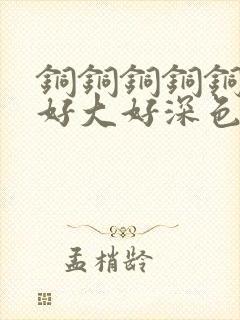 銅銅銅銅銅
好大好深色
孟梢龄